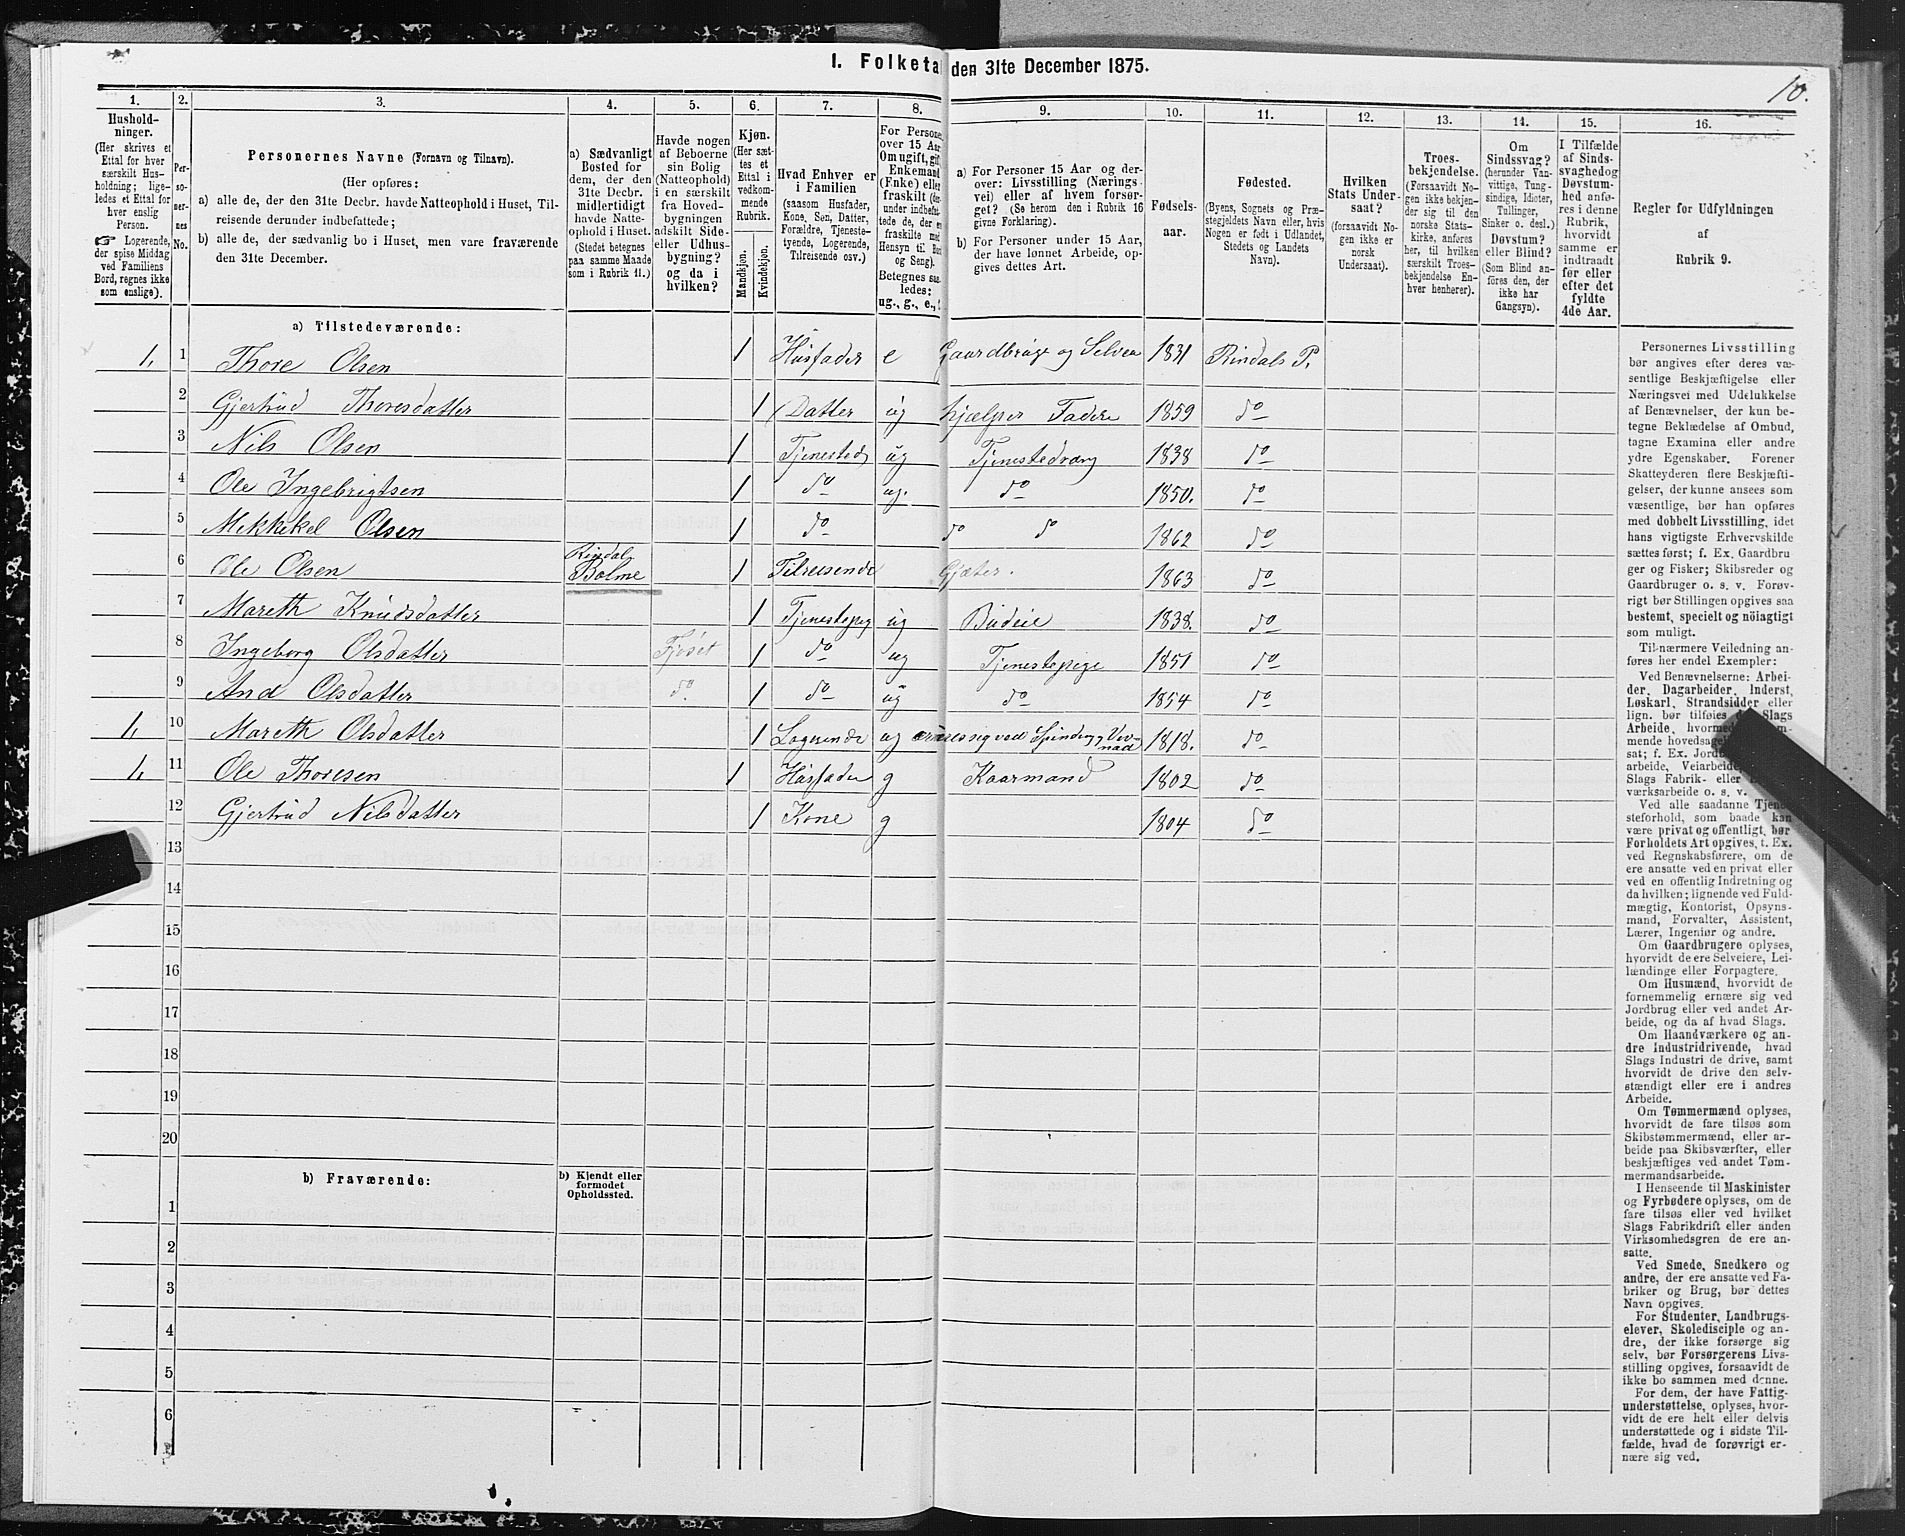 I. Folketal den 31te December 1875.
10.
1. 2. 3. 4. 5. 6. 7. 8. 9. 10. 11. 12. 13. 14. 15. 16.
Hushold-
ninger.
(Her skrives et
Ettal for hver
særskilt Hus-
holdning; lige-
ledes et Ettal for
hver enslig
Person.
☞ Logerende,
der spise Middag
ved Familiens
Bord, regnes ikke
som enslige).
Per-
so-
ner-
nes
No.
Personernes Navne (Fornavn og Tilnavn).
(Her opføres:
a) alle de, der den 31te Decbr. havde Natteophold i Huset, Til-
reisende derunder indbefattede;
b) alle de, der sædvanlig bo i Huset, men vare fraværende
den 31te December.
a) Sædvanligt
Bosted for
dem, der den
31te Decbr.
midlertidigt
havde Natte-
ophold i Huset.
(Stedet betegnes
paa samme Maade
som i Rubrik 11.)
Havde nogen
af Beboerne
sin Bolig
(Natteophold)
i en særskilt
fra Hoved-
bygningen
adskilt Side-
eller Udhus-
bygning?
og da i
hvilken?
Kjøn.
(Her sæt-
tes et
Ettal i
vedkom-
mende
Rubrik.
Mandkjøn.
Kvindekjøn.
Hvad Enhver er
i Familien
(saasom Husfader,
Kone, Søn, Datter,
Forældre, Tjeneste-
tyende, Logerende,
Tilreisende osv.)
For Personer
over 15 Aar
Om ugift, gift,
Enkemand
(Enke) eller
fraskilt
Betegnes saa-
ledes:
ug., g., e.,
a) For Personer 15 Aar og der-
over: Livsstilling (Nærings-
vei) eller af hvem forsør-
get? (Se herom den i Rubrik 16
givne Forklaring).
b) For Personer under 15 Aar,
der have lønnet Arbeide, op-
gives dettes Art.
Fødsels-
aar.
Fødested.
(Byens, Sognets og Præ-
stegjeldets Navn eller, hvis
Nogen er født i Udlandet,
Stedets og Landets
Navn).
Hvilken
Stats Under-
saat?
(forsaavidt No-
gen ikke er
norsk
Undersaat).
Troes-
bekjendelse.
(Forsaavidt No-
gen ikke bekjen-
der sig til den
norske Stats-
kirke, anføres
her, til hvilken
særskilt Troes-
bekjendelse En-
hver henhører).
Om
Sindssvag?
(herunder Van-
vittige, Tung-
sindige, Idioter,
Tullinger,
Sinker o. desl.)
Døvstum?
eller Blind?
(Som Blind an-
føres den, der
ikke har
Gangsyn).
I Tilfælde
af Sinds-
svaghed og
Døvstum-
hed anfø-
res i denne
Rubrik,
hvorvidt
samme er
indtraadt
før eller
efter det
fyldte
4de Aar.
Regler for Udfyldningen
af
Rubrik 9.
a) Tilstedeværende:
1, 1 Thore Olsen 1 Husfader e Gaardbruge og Selveier 1831 Rindals P.
2 Gjertrud Thoresdatter 1 Datter ug hjælper Fadere 1859 do
3 Nils Olsen 1 Tjenested ug Tjenestedræng 1838 do
4 Ole Ingebrigtsen 1 do ug. do 1850. do
5 Mekkekel Olsen 1 do do do 1862 do
6 Ole Olsen Rindal Bolme 1 Tilreisende Gjæter. 1863 do
7 Mareth Knudsdatter 1 Tjenestepig ug Budeie 1838. do
8 Ingeborg Olsdatter Fjøset 1 do ug Tjenestepige 1851 do
9 And Olsdatter do. 1 do ug do 1854 do
1, 10 Mareth Olsdatter 1 Logerende ug ved Spinding 1818. do
1, 11 Ole Thoresen 1 Husfader g Kaarmand 1802 do
12 Gjertrud Nilsdatter 1 Kone g 1804 do
13
14
15
16
17
18
19
20
b) Fraværende:
b) Kjendt eller
formodet
Opholdssted.
1
2
3
4
5
6
Personernes Livsstilling
bør angives efter deres væ-
sentlige Beskjæftigelse eller
Næringsvei med Udelukkelse
af Benævnelser, der kun be-
tegne Beklædelse af Ombud,
tagne Examina eller andre
ydre Egenskaber. Forener
Skatteyderen flere Beskjæfti-
gelser, der kunne ansees som
væsentlige, bør han opføres
med dobbelt Livsstilling, idet
hans vigtigste Erhvervskilde
sættes først; f. Ex. Gaardbru-
ger og Fisker; Skibsreder og
Gaardbruger o. s. v. Forøv-
rigt bør Stillingen opgives saa
bestemt, specielt og nöiagtigt
som muligt.
Til nærmere Veiledning an-
føres her endel Exempler:
Ved Benævnelserne: Arbei-
der, Dagarbeider, Inderst,
Løskarl, Strandsidder eller
lign. bør tilføies det Slags
Arbeide,
sat; f. Ex.
arbeide,
Slags Fabrik- eller
værksarbeide o. s. v.
Ved alle saadanne Tjene-
steforhold, som baade kan
være privat og offentligt, bør
Forholdets Art opgives, f. Ex.
ved Regnskabsførere, om de
ere ansatte ved en privat eller
ved en offentlig Indretning og
da hvilken; lignende ved Fuld-
mægtig, Kontorist, Opsyns-
mand, Forvalter, Assistent,
Lærer, Ingeniør og andre.
Om Gaardbrugere oplyses,
hvorvidt de ere Selveiere, Lei-
lændinge eller Forpagtere.
Om Husmænd, hvorvidt de
fornemmelig ernære sig ved
Jordbrug eller ved andet Ar-
beide, og da af hvad Slags.
Om Haandværkere og an-
dre Industridrivende, hvad
Slags Industri de drive, samt
hvorvidt de drive den selv-
stændigt eller ere i andres
Arbeide.
Om Tømmermænd oplyses,
hvorvidt de fare tilsøs som
Skibstømmermænd, eller ar-
beide paa Skibsværfter, eller
beskjæftiges ved andet Tøm-
mermandsarbeide.
I Henseende til Maskinister
og Fyrbødere oplyses, om de
fare tilsøs eller ved hvilket
Slags Fabrikdrift eller anden
Virksomhedsgren de ere an-
satte.
Ved Smede, Snedkere og
andre, der ere ansatte ved Fa-
briker og Brug, bør dettes
Navn opgives.
For Studenter, Landbrugs-
elever, Skoledisciple og an-
dre, der ikke forsørge sig
selv, bør Forsørgerens Livs-
stilling opgives, forsaavidt de
ikke bo sammen med denne.
For dem, der have Fattig-
understøttelse, oplyses, hvor-
vidt de ere helt eller delvis
understøttede og i sidste Til-
fælde, hvad de forøvrigt er-
nære sig ved.